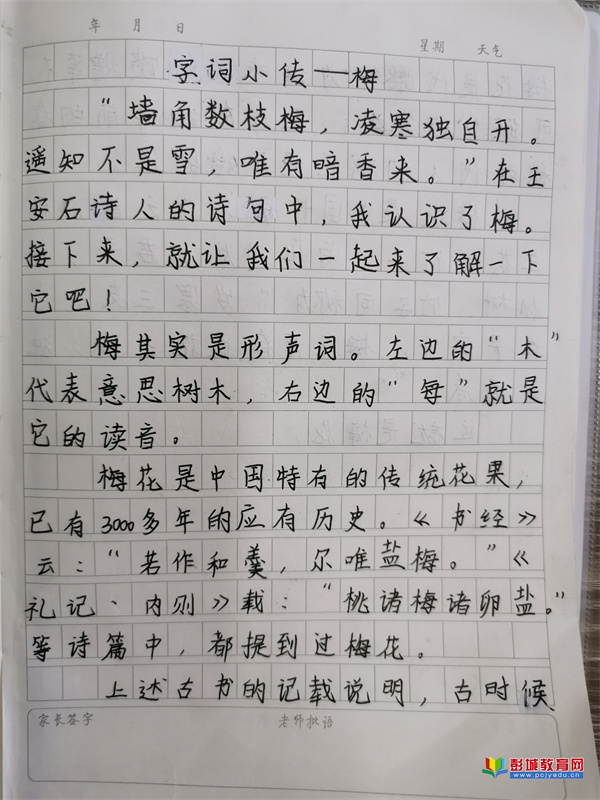 年 月 日
星期 天气
字词小传——梅
“墙角数枝梅，凌寒独自开。
遥知不是雪，唯有暗香来。”在王
安石诗人的诗句中，我认识了梅。
接下来，就让我们一起来了解一下
它吧！
梅其实是形声词。左边的“木”
代表意思树木，右边的“每”就是
它的读音。
梅花是中国特有的传统花果，
已有3000多年的应有历史。《书经》
云：“若作和羹，尔唯盐梅。”《
礼记·内则》载：“桃诸梅诸卵盐。”
等诗篇中，都提到过梅花。
上述古书的记载说明，古时候
家长签字 老师批语
彭城教育网
www.pcjyedu.cn